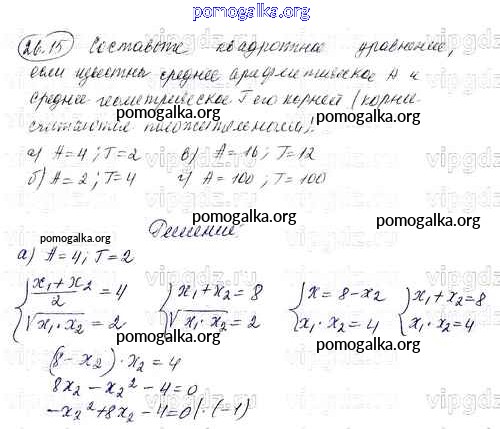 pomogalka.org
26.15 Составьте квадратное уравнение,
если известны среднее арифметическое A и
среднее геометрическое Г его корней (корни
считаются положительными):
а) A=4; Г=2 в) A=16; Г=12
б) A=2; Г=4 г) A=100; Г=100
pomogalka.org
Решение:
pomogalka.org
а) A=4; Г=2
{ (x₁+x₂)/2 = 4 { x₁+x₂=8 { x=8-x₂ { x₁+x₂=8
{ √(x₁·x₂) = 2 { √(x₁·x₂) = 2 { x₁·x₂=4 { x₁·x₂=4
pomogalka.org pomogalka.org
(8-x₂)·x₂=4
8x₂-x₂²-4=0
-x₂²+8x₂-4=0 |·(-1)
pomogalka.org